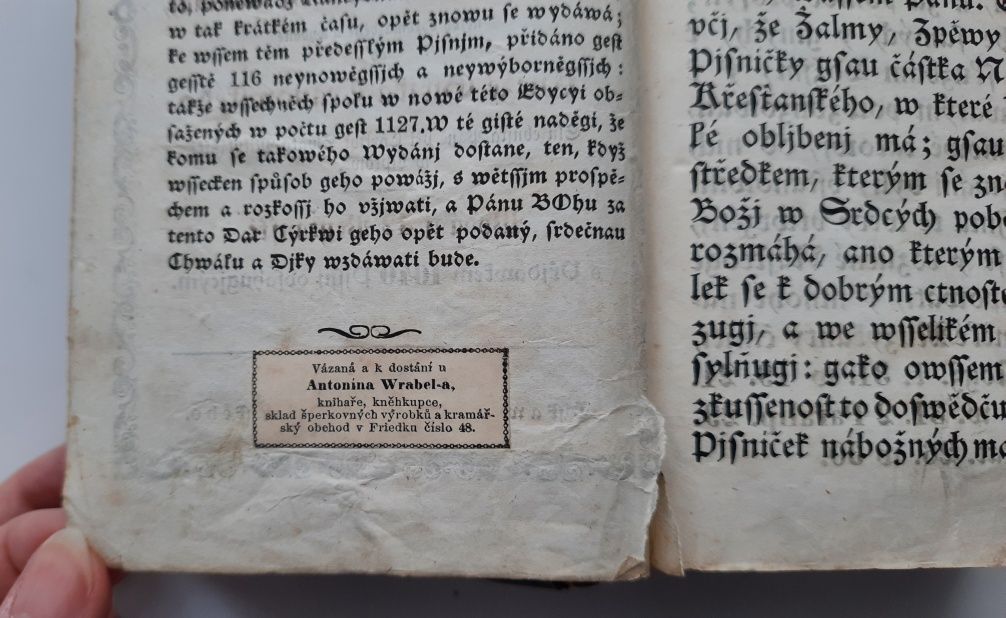 w tak krátkém času, opět znowu se wydáwá;
ke wssem těm předesslým Pjsnjm, přidáno gest
gesstě 116 neynowěgssjch a neywýborněgssjch:
takže wssechněch spolu w nowé této Edycyi ob-
sažených w počtu gest 1127. W té gisté naděgi, že
komu se takowého Wydánj dostane, ten, když
wssecken spůsob geho powážj, s wětssjm prospě-
chem a rozkossj ho vžjwati, a Pánu BOhu za
tento Dar Cýrkwi geho opět podaný, srdečnau
Chwálu a Djky wzdáwati bude.
Vázaná a k dostání u
Antonina Wrabel-a,
knihaře, kněhkupce,
sklad šperkovných výrobků a kramář-
ský obchod v Friedku číslo 48.
včj, že Žalmy, Zpěwy
Pjsničky gsau částka
Křestanského, w které
ké obljbenj má; gsau
středkem, kterým se
Božj w Srdcých
rozmáhá, ano kterým
lek se k dobrým
zugj, a we wsselikém
sylňugj: gako owssem
zkussenost to
Pjsniček nábožných